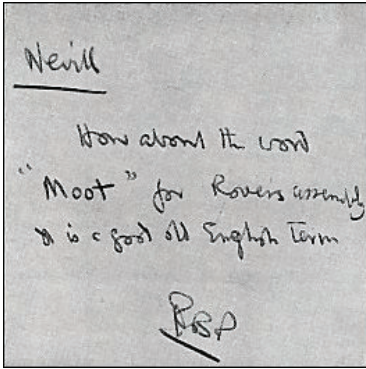 Nevill
How about the word
"Moot" for Rovers assembly
It is a good old English term
RBP